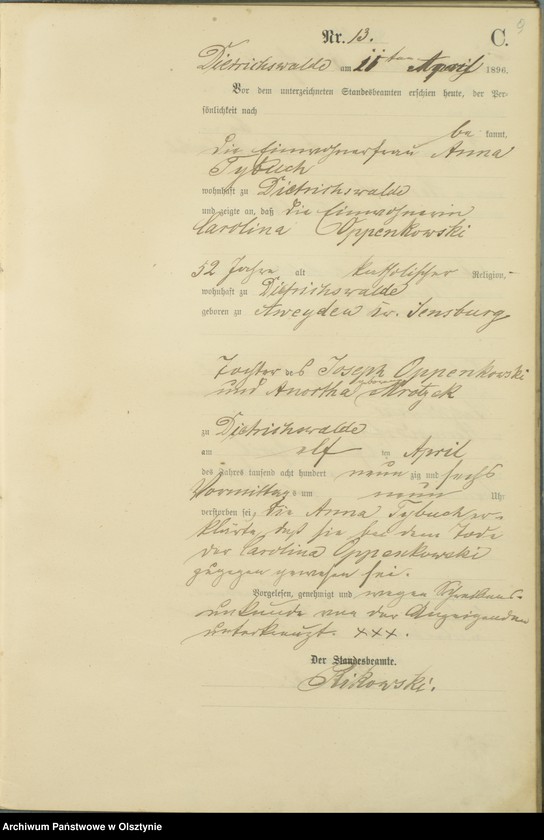 9
Nr. 13.
C.
Dietrichswalde am ten April 1896.
Vor dem unterzeichneten Standesbeamten erschien heute, der Per-
sönlichkeit nach
be kannt,
die Einwohnerfrau Anna
Tybuch
wohnhaft zu Dietrichswalde
und zeigte an, daß die Einwohnerin
Carolina Oppenkowski
52 Jahre alt katholischer Religion,
wohnhaft zu Dietrichswalde
geboren zu Aweyden Kr. Sensburg
Tochter des Joseph Oppenkowski
und geborene
zu Dietrichswalde
am elf ten April
des Jahres tausend acht hundert neun zig und sechs
Vormittags um neun Uhr
verstorben sei, die Anna Tybuch er-
klärte, daß sie bei dem Tode
der Carolina Oppenkowski
zugegen gewesen sei.
Vorgelesen, genehmigt und wegen Schreibens-
unkunde von der Anzeigenden
unterkreuzt. xxx.
Der Standesbeamte.
Archiwum Państwowe w Olsztynie